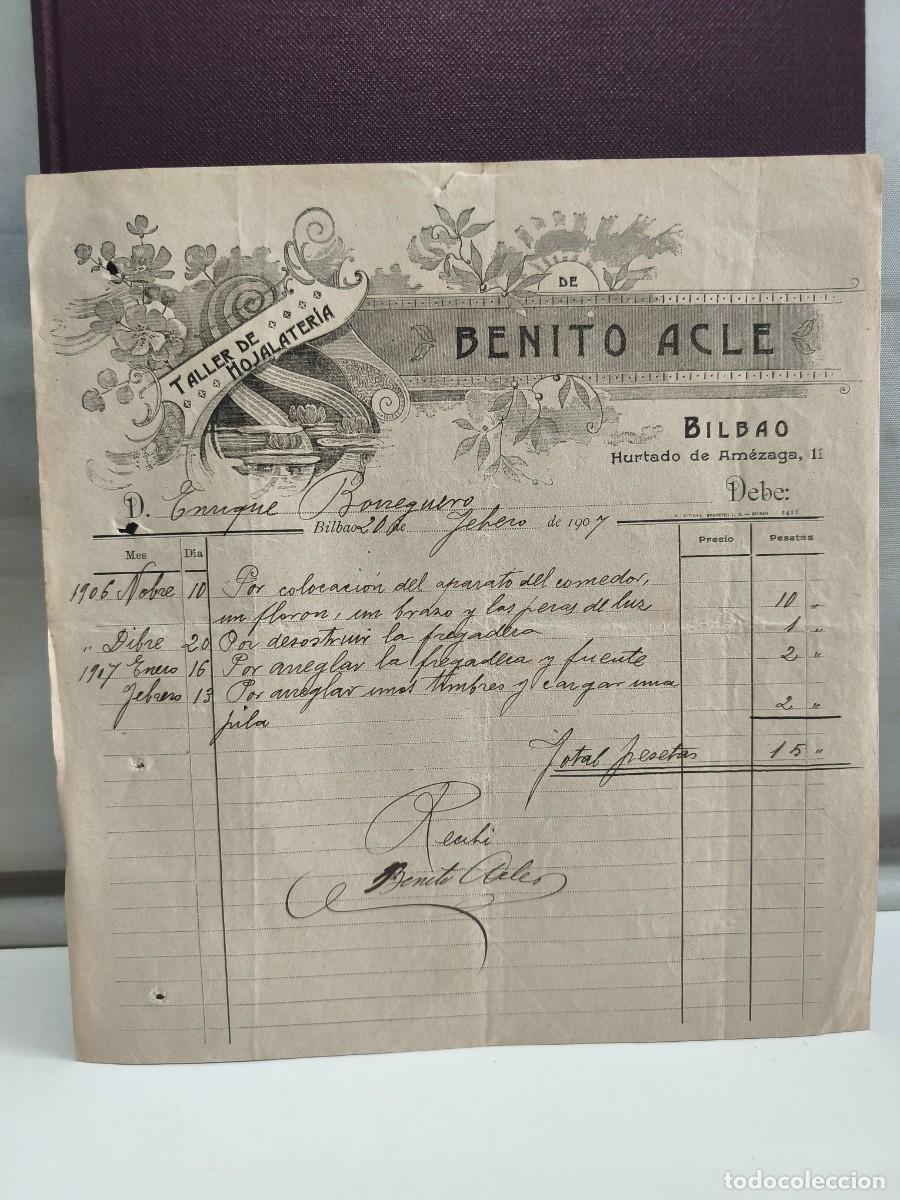 TALLER DE
HOJALATERÍA
DE
BENITO ACLE
BILBAO
Hurtado de Amézaga, 11
Debe:
D. Enrique Borreguero
Bilbao 20 de Febrero de 1907
Mes Dia Precio Pesetas
1906 Nobre 10 Por colocación del aparato del comedor,
un floron, un brazo y las peras de luz 10 „
„ Dibre 20 Por desostruir la fregadera 1 „
1907 Enero 16 Por arreglar la fregadera y fuente 2 „
Febrero 13 Por arreglar unos timbres y cargar una
pila 2 „
Total pesetas 15 „
Recibi
Benito Acle
todocoleccion